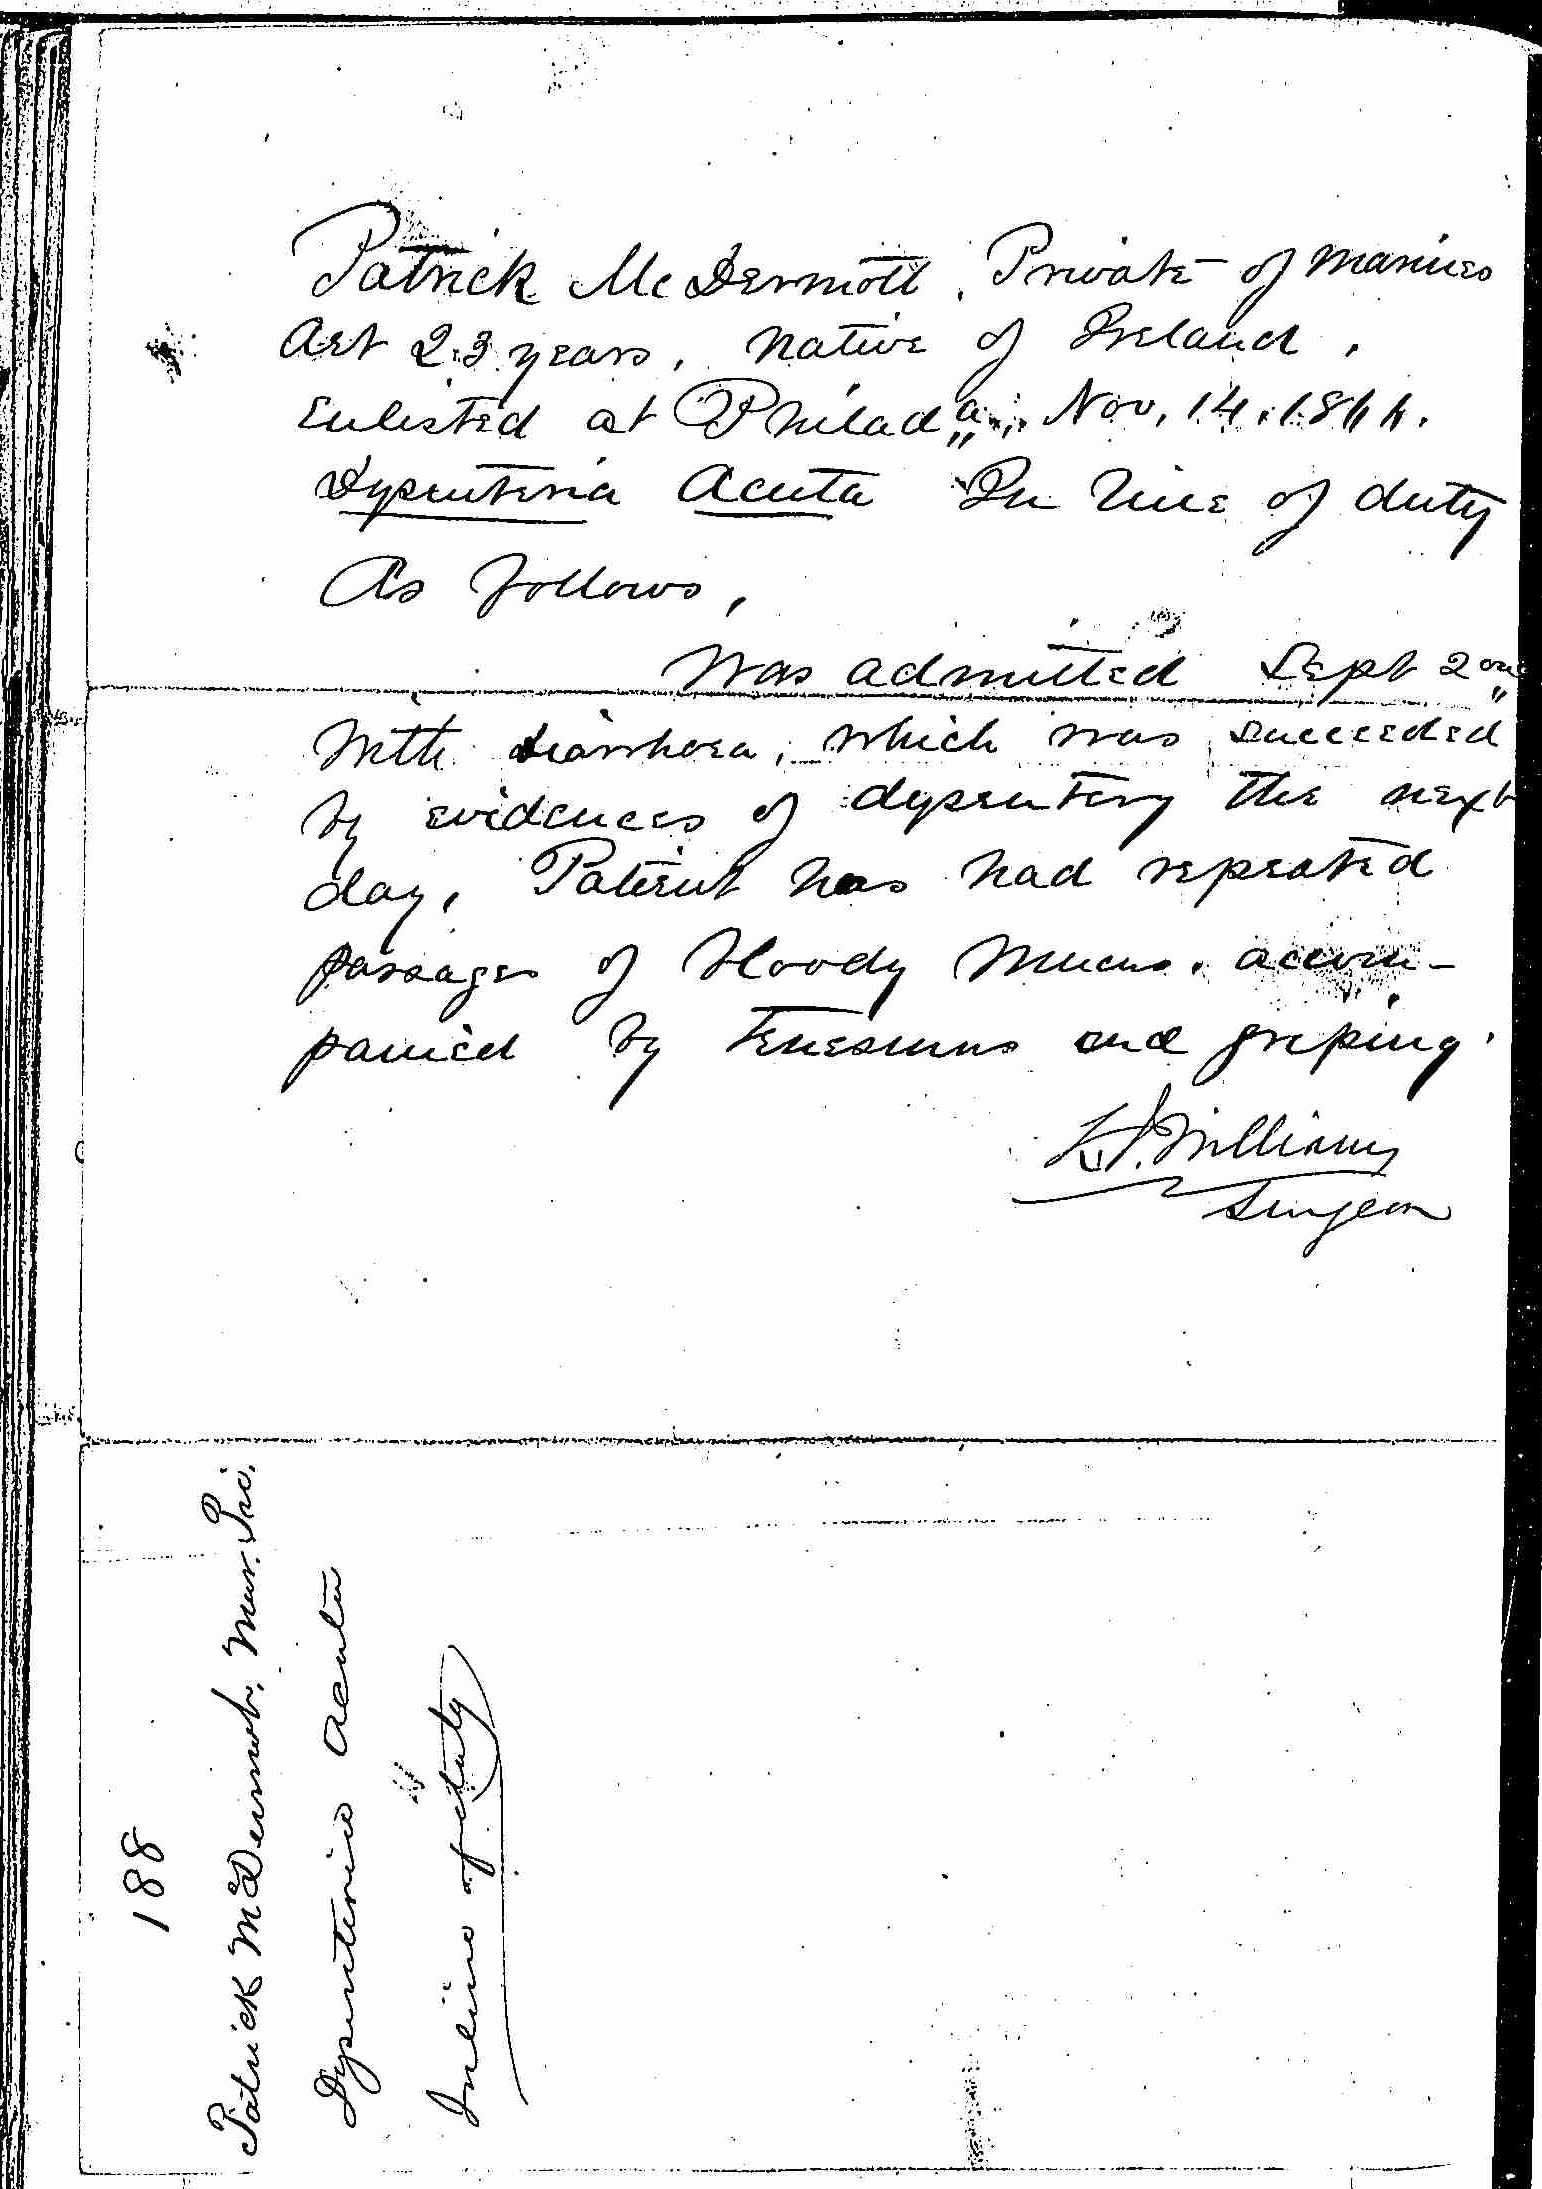 Patrick McDermott, Private of Marines
Aet 23 years, native of Ireland,
Enlisted at Philada., Nov, 14, 1866.
Dysenteria Acuta In line of duty
As follows,
Was admitted Sept 2nd
With diarrhoea, which was succeeded
by evidences of dysentery the next
day, Patient has had repeated
passages of bloody mucus, accom-
panied by tenesmus and griping.
Williams
Surgeon
188
Patrick McDermott, Mar. Pri.
Dysenteria Acuta
In line of duty